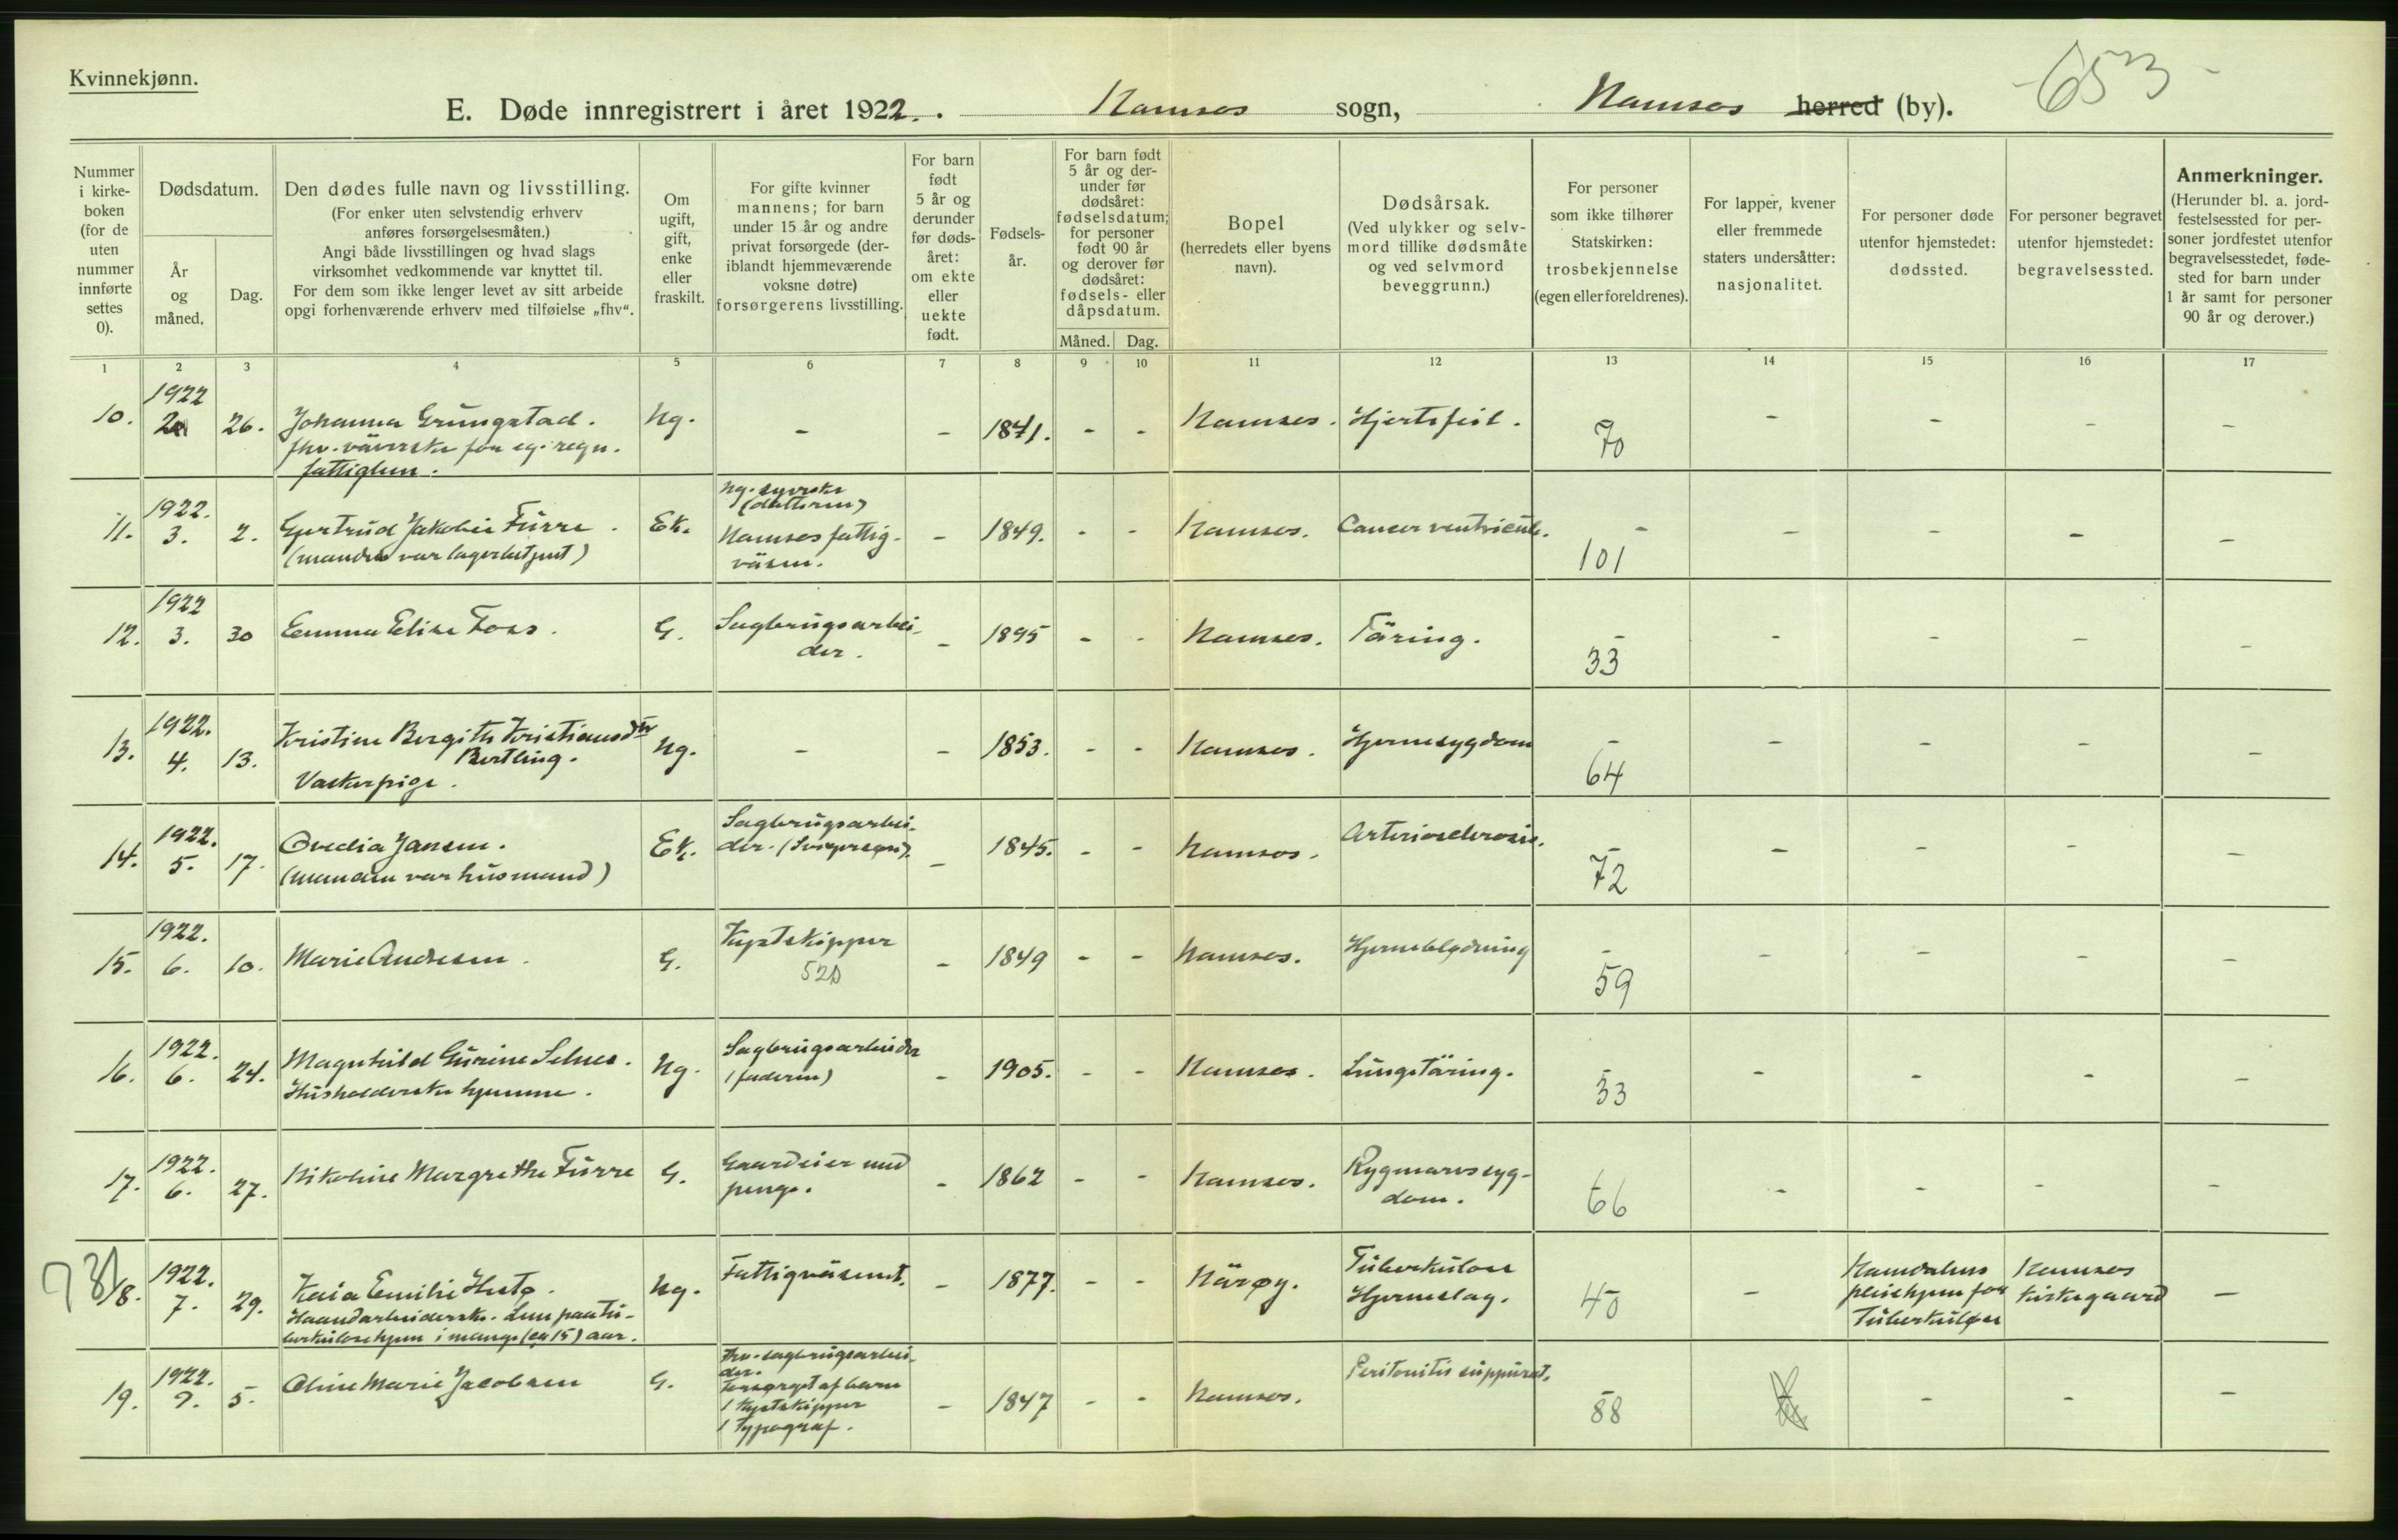 Kvinnekjønn.
-653-
E. Døde innregistrert i året 1922. Namsos sogn, Namsos herred (by).
Nummer i kirke-boken (for de uten nummer innførte settes 0).
Dødsdatum.
År og måned.
Dag.
Den dødes fulle navn og livsstilling.
(For enker uten selvstendig erhverv anføres forsørgelsesmåten.)
Angi både livsstillingen og hvad slags virksomhet vedkommende var knyttet til.
For dem som ikke lenger levet av sitt arbeide opgi forhenværende erhverv med tilføielse „fhv“.
Om ugift, gift, enke eller fraskilt.
For gifte kvinner mannens; for barn under 15 år og andre privat forsørgede (der-iblandt hjemmeværende voksne døtre) forsørgerens livsstilling.
For barn født 5 år og derunder før døds-året: om ekte eller uekte født.
Fødsels-år.
For barn født 5 år og der-under før dødsåret: fødselsdatum; for personer født 90 år og derover før dødsåret: fødsels- eller dåpsdatum.
Måned.
Dag.
Bopel
(herredets eller byens navn).
Dødsårsak.
(Ved ulykker og selv-mord tillike dødsmåte og ved selvmord beveggrunn.)
For personer som ikke tilhører Statskirken: trosbekjennelse (egen eller foreldrenes).
For lapper, kvener eller fremmede staters undersåtter: nasjonalitet.
For personer døde utenfor hjemstedet: dødssted.
For personer begravet utenfor hjemstedet: begravelsessted.
Anmerkninger.
(Herunder bl. a. jord-festelsessted for per-soner jordfestet utenfor begravelsesstedet, føde-sted for barn under 1 år samt for personer 90 år og derover.)
1 2 3 4 5 6 7 8 9 10 11 12 13 14 15 16 17
1922
10. 2 26. Johanna Grüngstad. Ug. - - 1841. - - Namsos. Hjertefeil. - - - -
fhv. väverske for eg. regn. 70
fattiglem.
Ug. syerske
(datteren)
1922.
11. 3. 2. Gjertrud Jakobie Fürre. Ek. Namsos fattig- - 1849. - - Namsos. Cancer ventricul. - - - - -
(manden var lagerbetjent) väsen. 101
1922
12. 3. 30 Emma Elise Foss. G. Sagbrugsarbei- - 1895 - - Namsos. Täring. - - - - -
der. 33
1922.
13. 4. 13. Kristine Bergitte Kristiansdtr Ug. - - 1853. - - Namsos. Hjernesygdom - - - - -
Bertling. 64
Vaskerpige.
1922.
14. 5. 17. Ovedia Jansen. Ek. Sagbrugsarbei- - 1845. - - Namsos. Arteriosclerosis. - - - - -
(manden var husmand) der. (Svigersøn). 72
1922.
15. 6. 10. Marie Andresen. G. Kystskipper - 1849 - - Namsos. Hjerneblødning - - - - -
59
1922.
16. 6. 24. Magnhild Gurine Selnes. Ug. Sagbrugsarbeider - 1905. - - Namsos. Lungetäring. - - - - -
Husholderske hjemme. (faderen) 33
1922.
17. 6. 27. Nikoline Margrethe Fürre G. Gaardeier med - 1862 - - Namsos. Rygmarvssyg- - - - - -
penge. dom. 66
1922.
18. 7. 29. Kaia Emilie Hestø. Ug. Fattigväsenet. - 1877. - - Näröy. Tuberkulose - Namdalens Namsos -
Haandarbeiderske. Lem paa tu- Hjerneslag. 40 pleiehjem for kirkegaard
berkulosehjem i mange (ca 15) aar. Tuberkuløse
1922.
19. 9. 5. Oline Marie Jacobsen G. fhv. sagbrugsarbei- - 1847 - - Namsos. Peritonitis suppurat. - - - -
der. 88
Forsørget af børn
1 Kystskipper
1 Typograf.